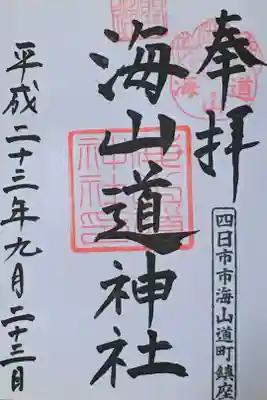 奉拝
四日市市海山道町鎮座
海山道神社
平成二十三年九月二十三日